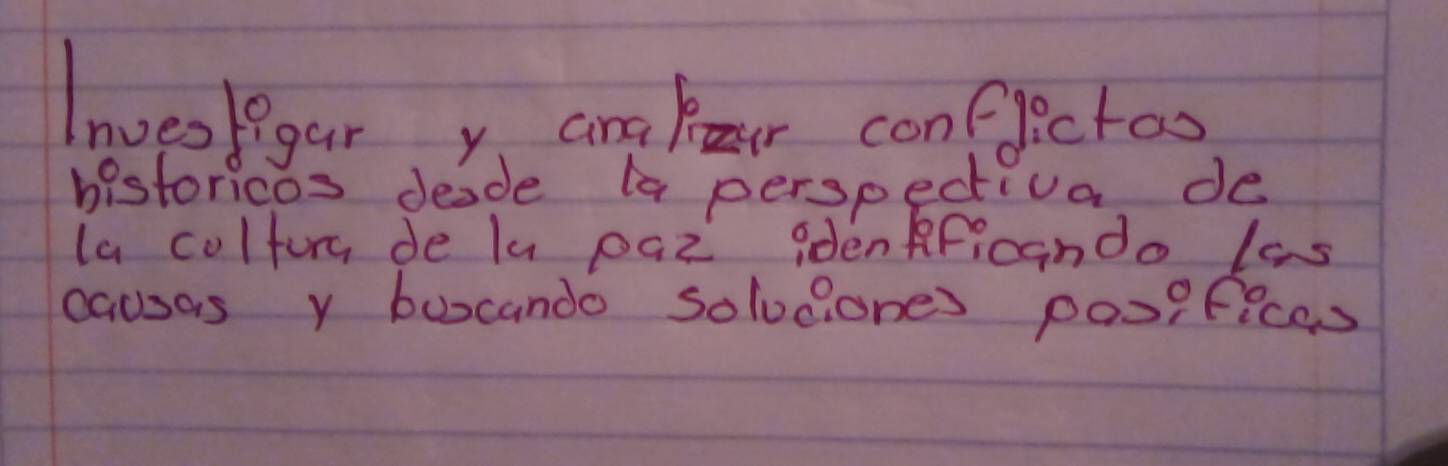 Investigar y analizar conflictos
historicos desde la perspectiva de
la cultura de la paz identificando las
causas y buscando soluciones posificas